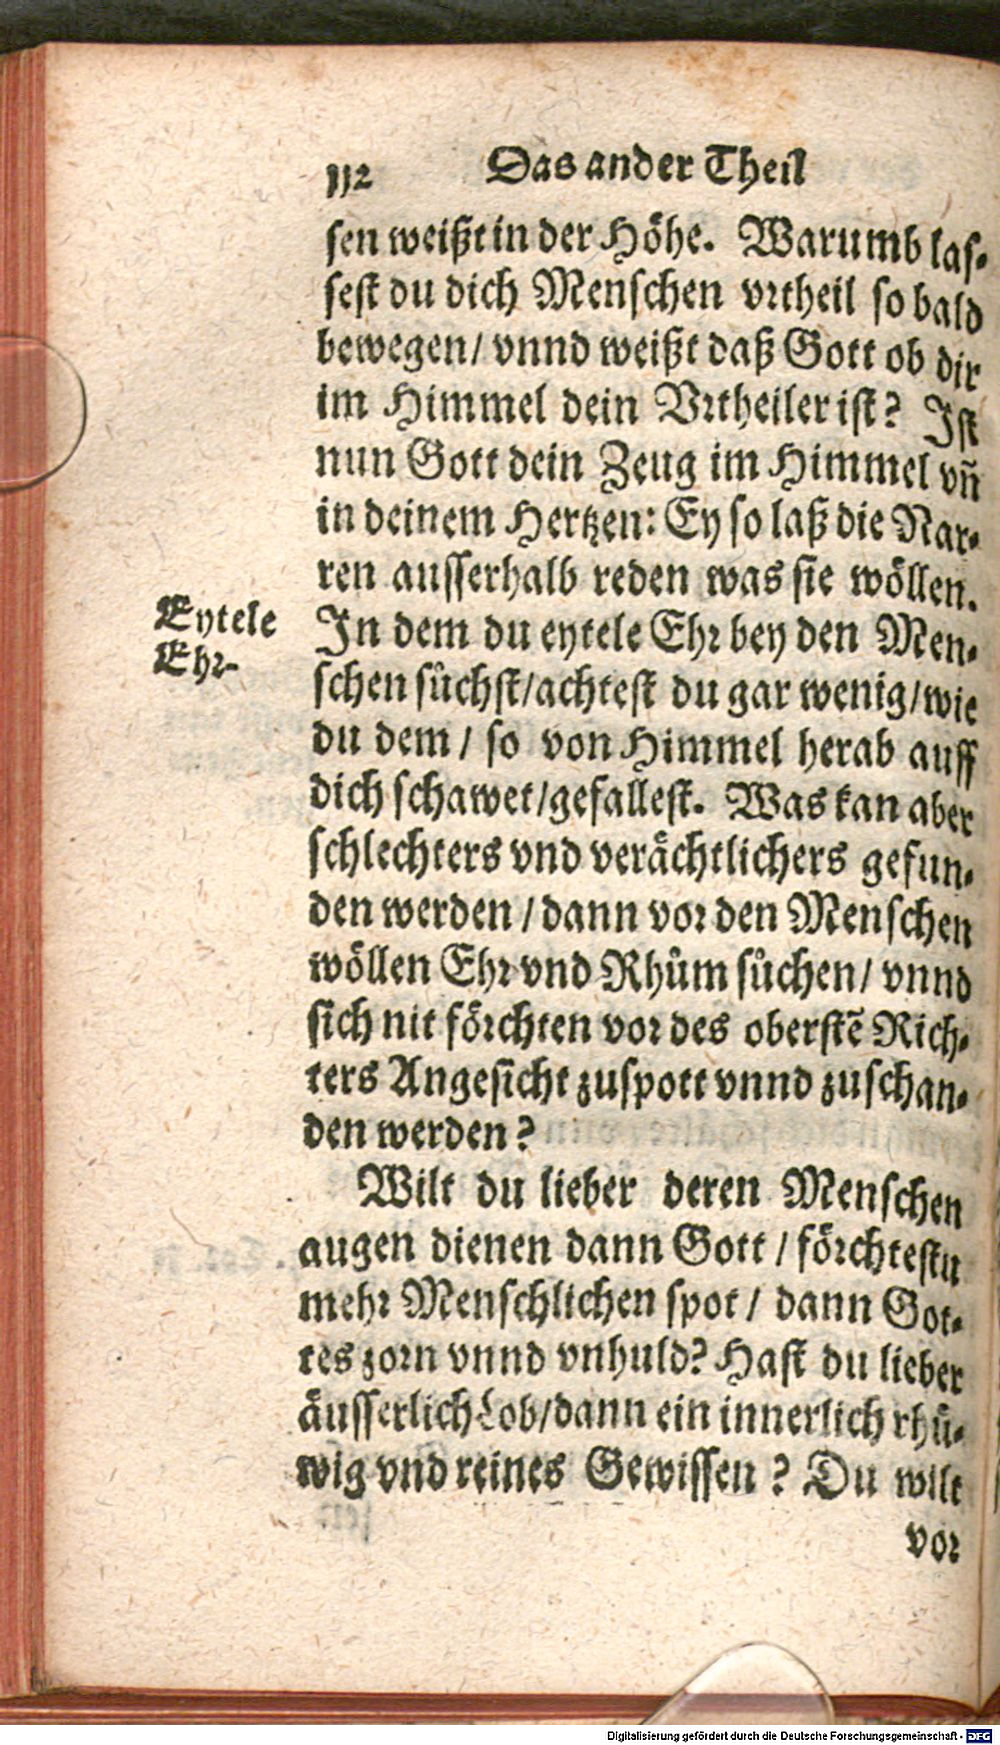 112 Das ander Theil
sen weißt in der Höhe. Warumb las-
sest du dich Menschen vrtheil so bald
bewegen/ vnnd weißt daß Gott ob dir
im Himmel dein Vrtheiler ist? Ist
nun Gott dein Zeug im Himmel vñ
in deinem Hertzen: Ey so laß die Nar-
ren ausserhalb reden was sie wöllen.
Eytele
Ehr.
In dem du eytele Ehr bey den Men-
schen sůchst/achtest du gar wenig/wie
du dem/ so von Himmel herab auff
dich schawet/gefallest. Was kan aber
schlechters vnd verächtlichers gefun-
den werden/dann vor den Menschen
wöllen Ehr vnd Rhům sůchen/ vnnd
sich nit förchten vor des oberstē Rich-
ters Angesicht zuspott vnnd zuschan-
den werden?
Wilt du lieber deren Menschen
augen dienen dann Gott/ förchtestu
mehr Menschlichen spot/ dann Got-
tes zorn vnnd vnhuld? Hast du lieber
äusserlich Lob/dann ein innerlich rhů-
wig vnd reines Gewissen? Du wilt
vor
Digitalisierung gefördert durch die Deutsche Forschungsgemeinschaft - DFG